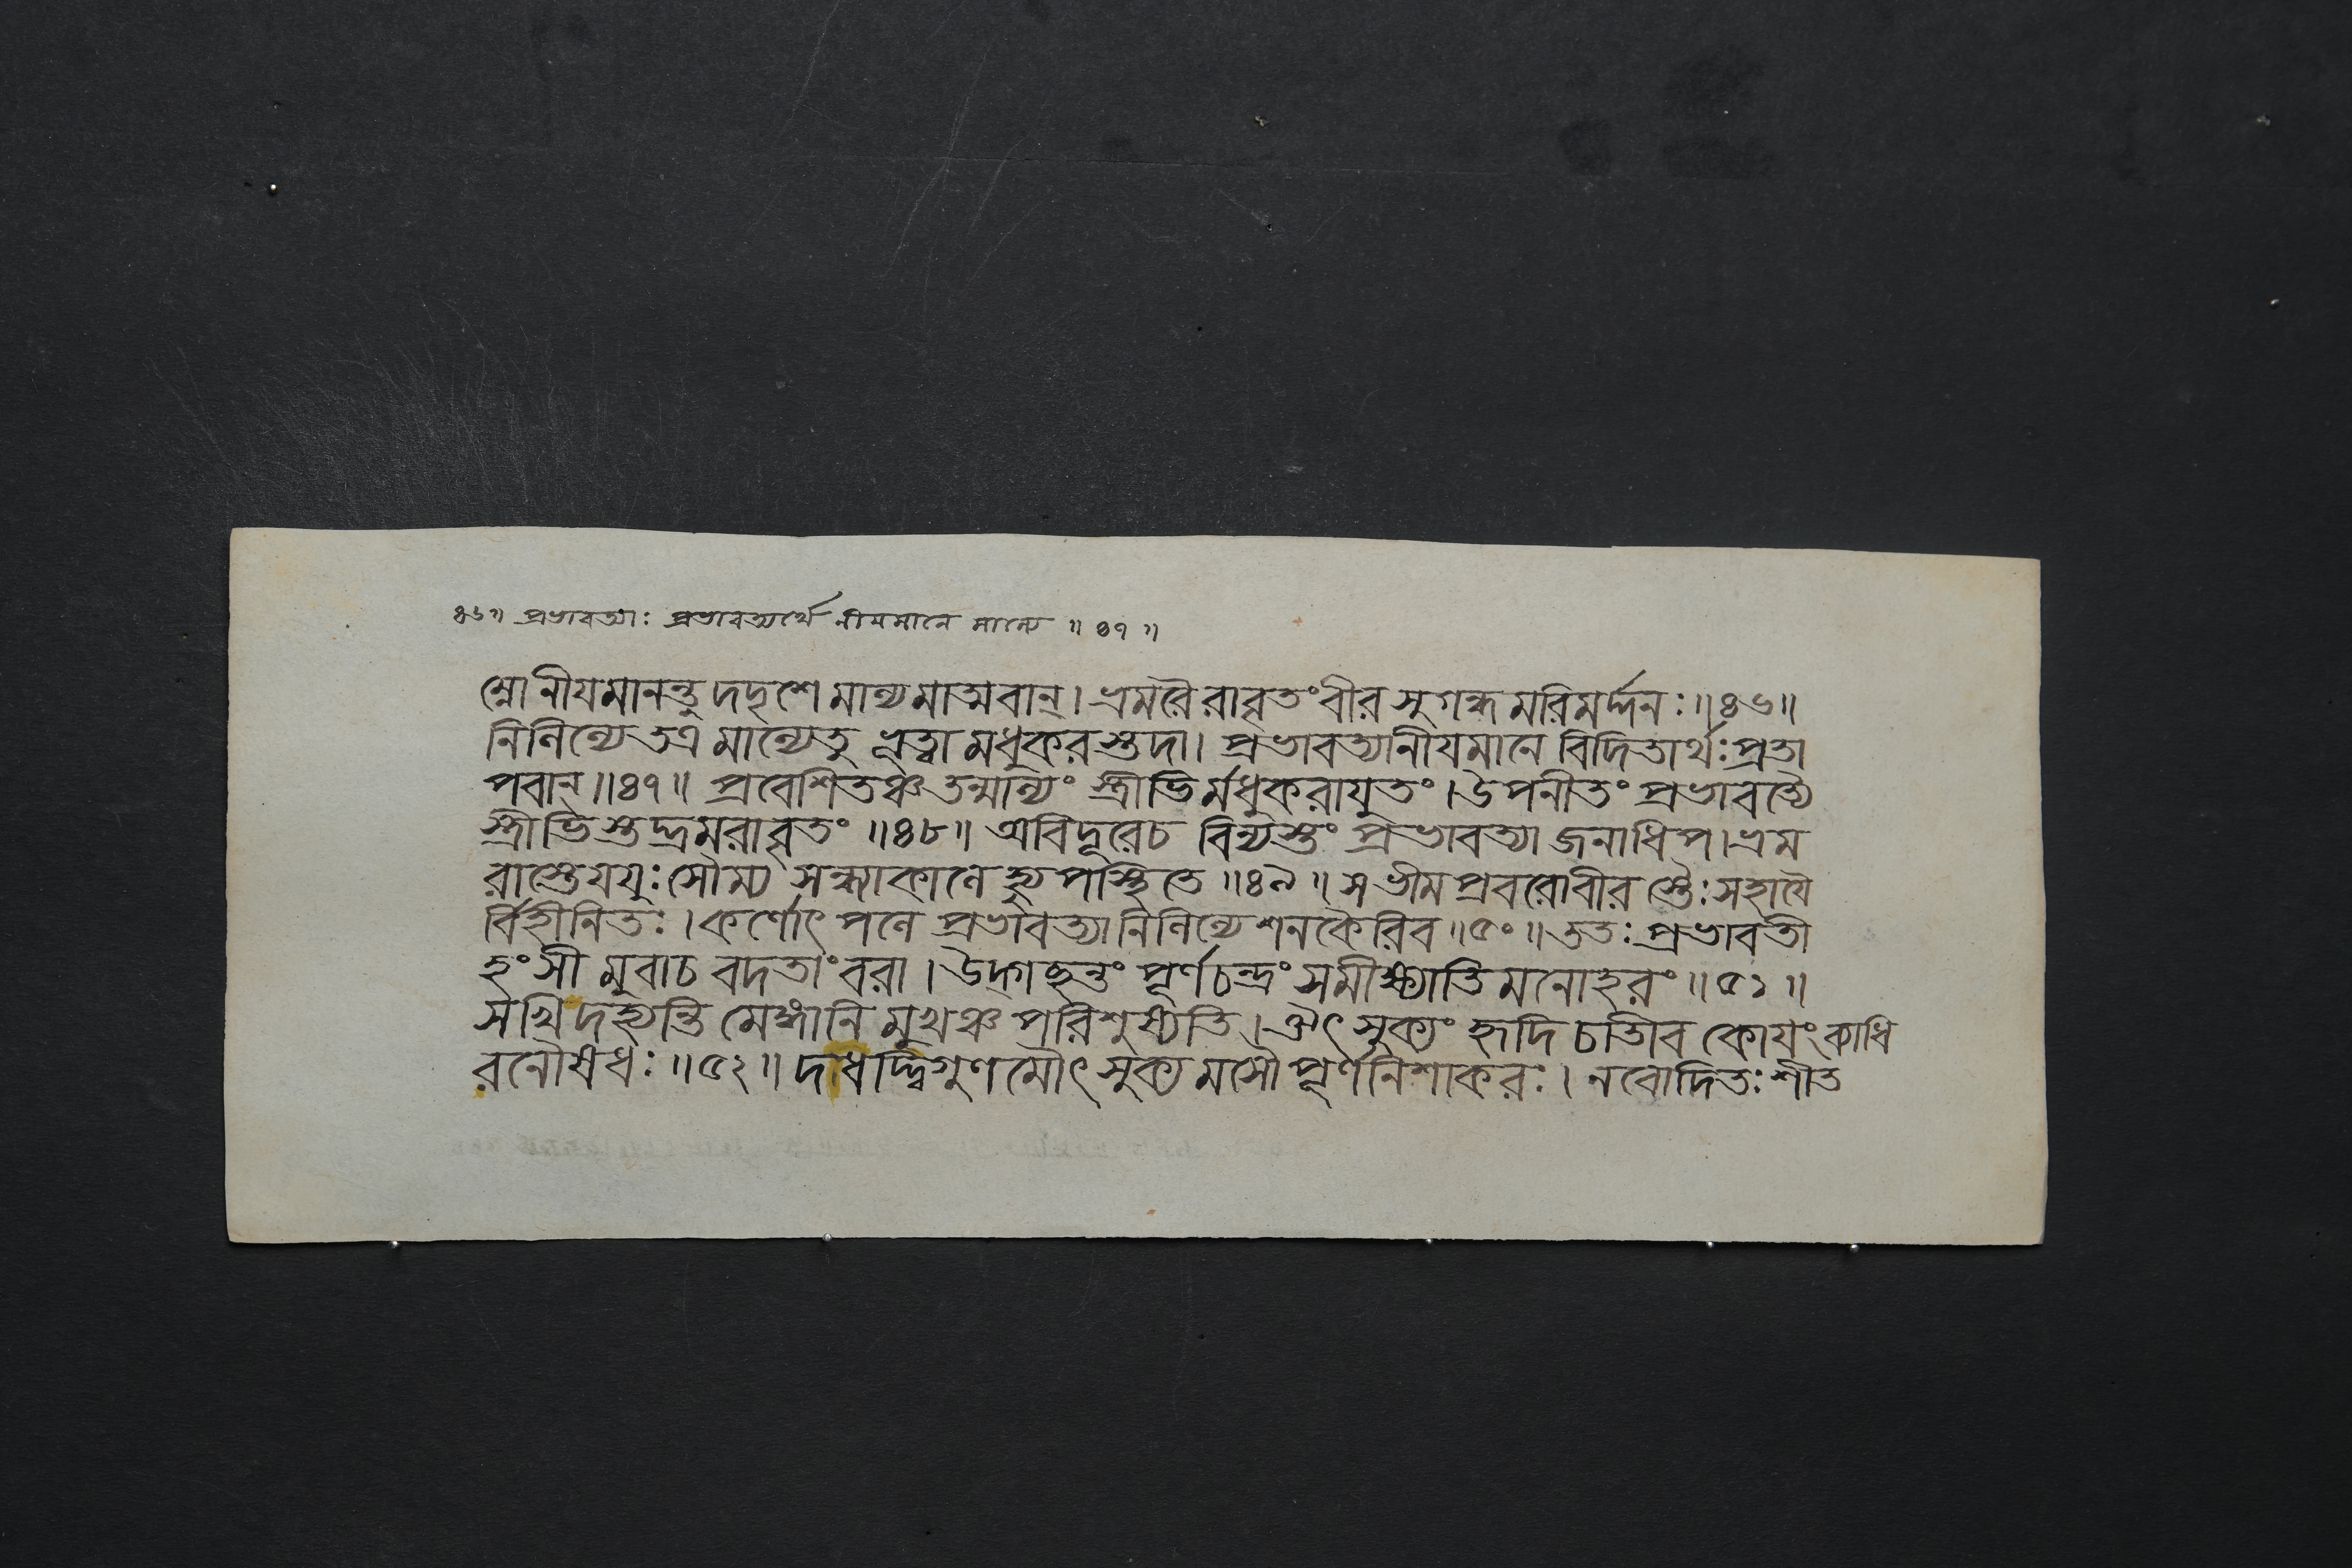 ৪৬॥ প্রভাবত্যাঃ প্রভাবত্যর্থে নীয়মানে মাল্যে ॥ ৪৭ ॥
ম্নো নীযমানন্তু দদৃশে মাল্যমাত্মবান্। ভ্রমরৈরাবৃতং বীর সুগন্ধমরিমর্দ্দনঃ॥৪৬॥
নিলিল্যে তত্র মাল্যেতু ভূত্বা মধুকরস্তুদা। প্রভাবত্যানীযমানে বিদিতার্থঃপ্রতা
পবান্॥৪৭॥ প্রবেশিতঞ্চ তন্মাল্যং স্ত্রীভির্মধুকরাযুতং। উপনীতং প্রভাবত্যৈ
স্ত্রীভিস্তদ্ভ্রমরাবৃতং ॥৪৮॥ অবিদূরেচ বিন্যস্তং প্রভাবত্যা জনাধিপ। ভ্রম
রাস্তেযযুঃ সৌম্য সন্ধ্যাকালে হ্যুপস্থিতে ॥৪৯॥ স ভীমপ্রবরো বীরস্তৈঃসহাযৈ
র্বিহীনিতঃ। কর্ণোৎপলে প্রভাবত্যা নিলিল্যে শনকৈরিব॥৫০॥ ততঃ প্রভাবতী
হংসী মুবাচ বদতাংবরা। উদ্গচ্ছন্তং পূর্ণচন্দ্রং সমীক্ষ্যাতিমনোহরং॥৫১॥
সখি দহ্যন্তি মেঙ্গানি মুখঞ্চ পরিশুষ্যতি। ঔৎসুক্যং হৃদি চাতীব কোযংব্যাধি
রনৌষধঃ॥৫২॥ দাধদ্দ্বিগুণমৌৎসুক্যমসৌ পূর্ণনিশাকরঃ। নবোদিতঃ শীত